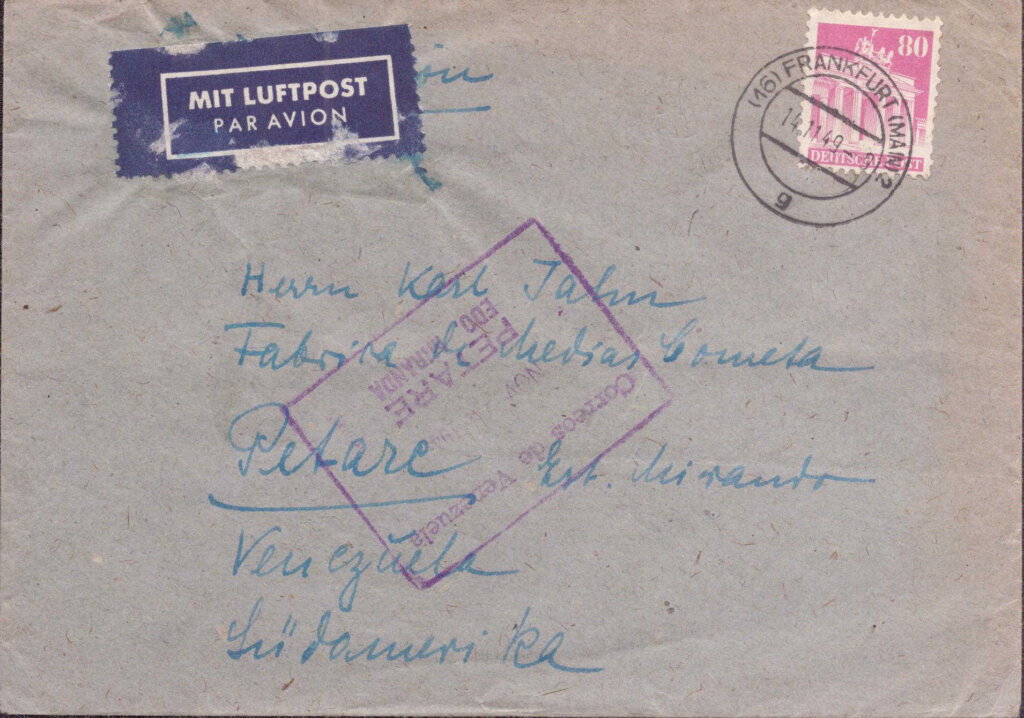 MIT LUFTPOST
PAR AVION
80
DEUTSCHE POST
(16) FRANKFURT (MAIN) 2
14.11.49
g
Herrn Karl Jahn
Fabrica de Medias Cometa
Petare Est. Mirando
Venezuela
Südamerika
Correos de Venezuela
NOV
PETARE
EDO MIRANDA